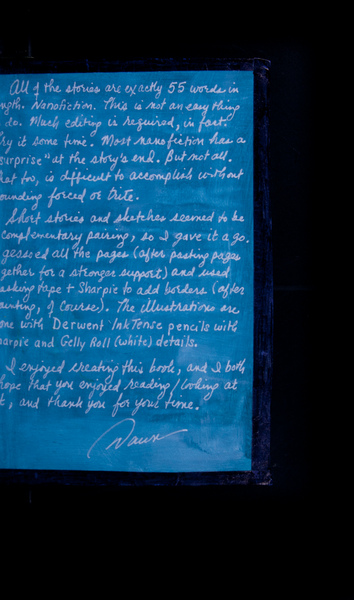 All of the stories are exactly 55 words in
ngth. Nanofiction. This is not an easy thing
do. Much editing is required, in fact.
ry it some time. Most nanofiction has a
surprise" at the story's end. But not all.
hat too, is difficult to accomplish without
ounding forced or trite.
Short stories and sketches seemed to be
complementary pairing, so I gave it a go.
gessoed all the pages (after pasting pages
gether for a stronger support) and used
asking tape + Sharpie to add borders (after
ainting, of course). The illustrations are
one with Derwent InkTense pencils with
harpie and Gelly Roll (white) details.
I enjoyed creating this book, and I both
hope that you enjoyed reading/looking at
t, and thank you for your time.